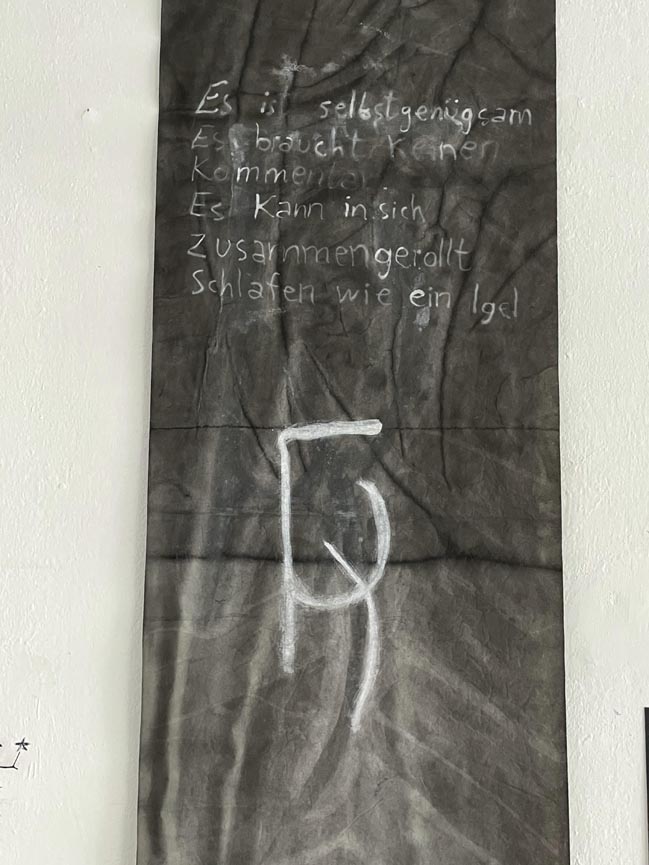 Es ist selbstgenügsam
Es braucht keinen
Kommentar
Es Kann in sich
Zusammengerollt
Schlafen wie ein Igel